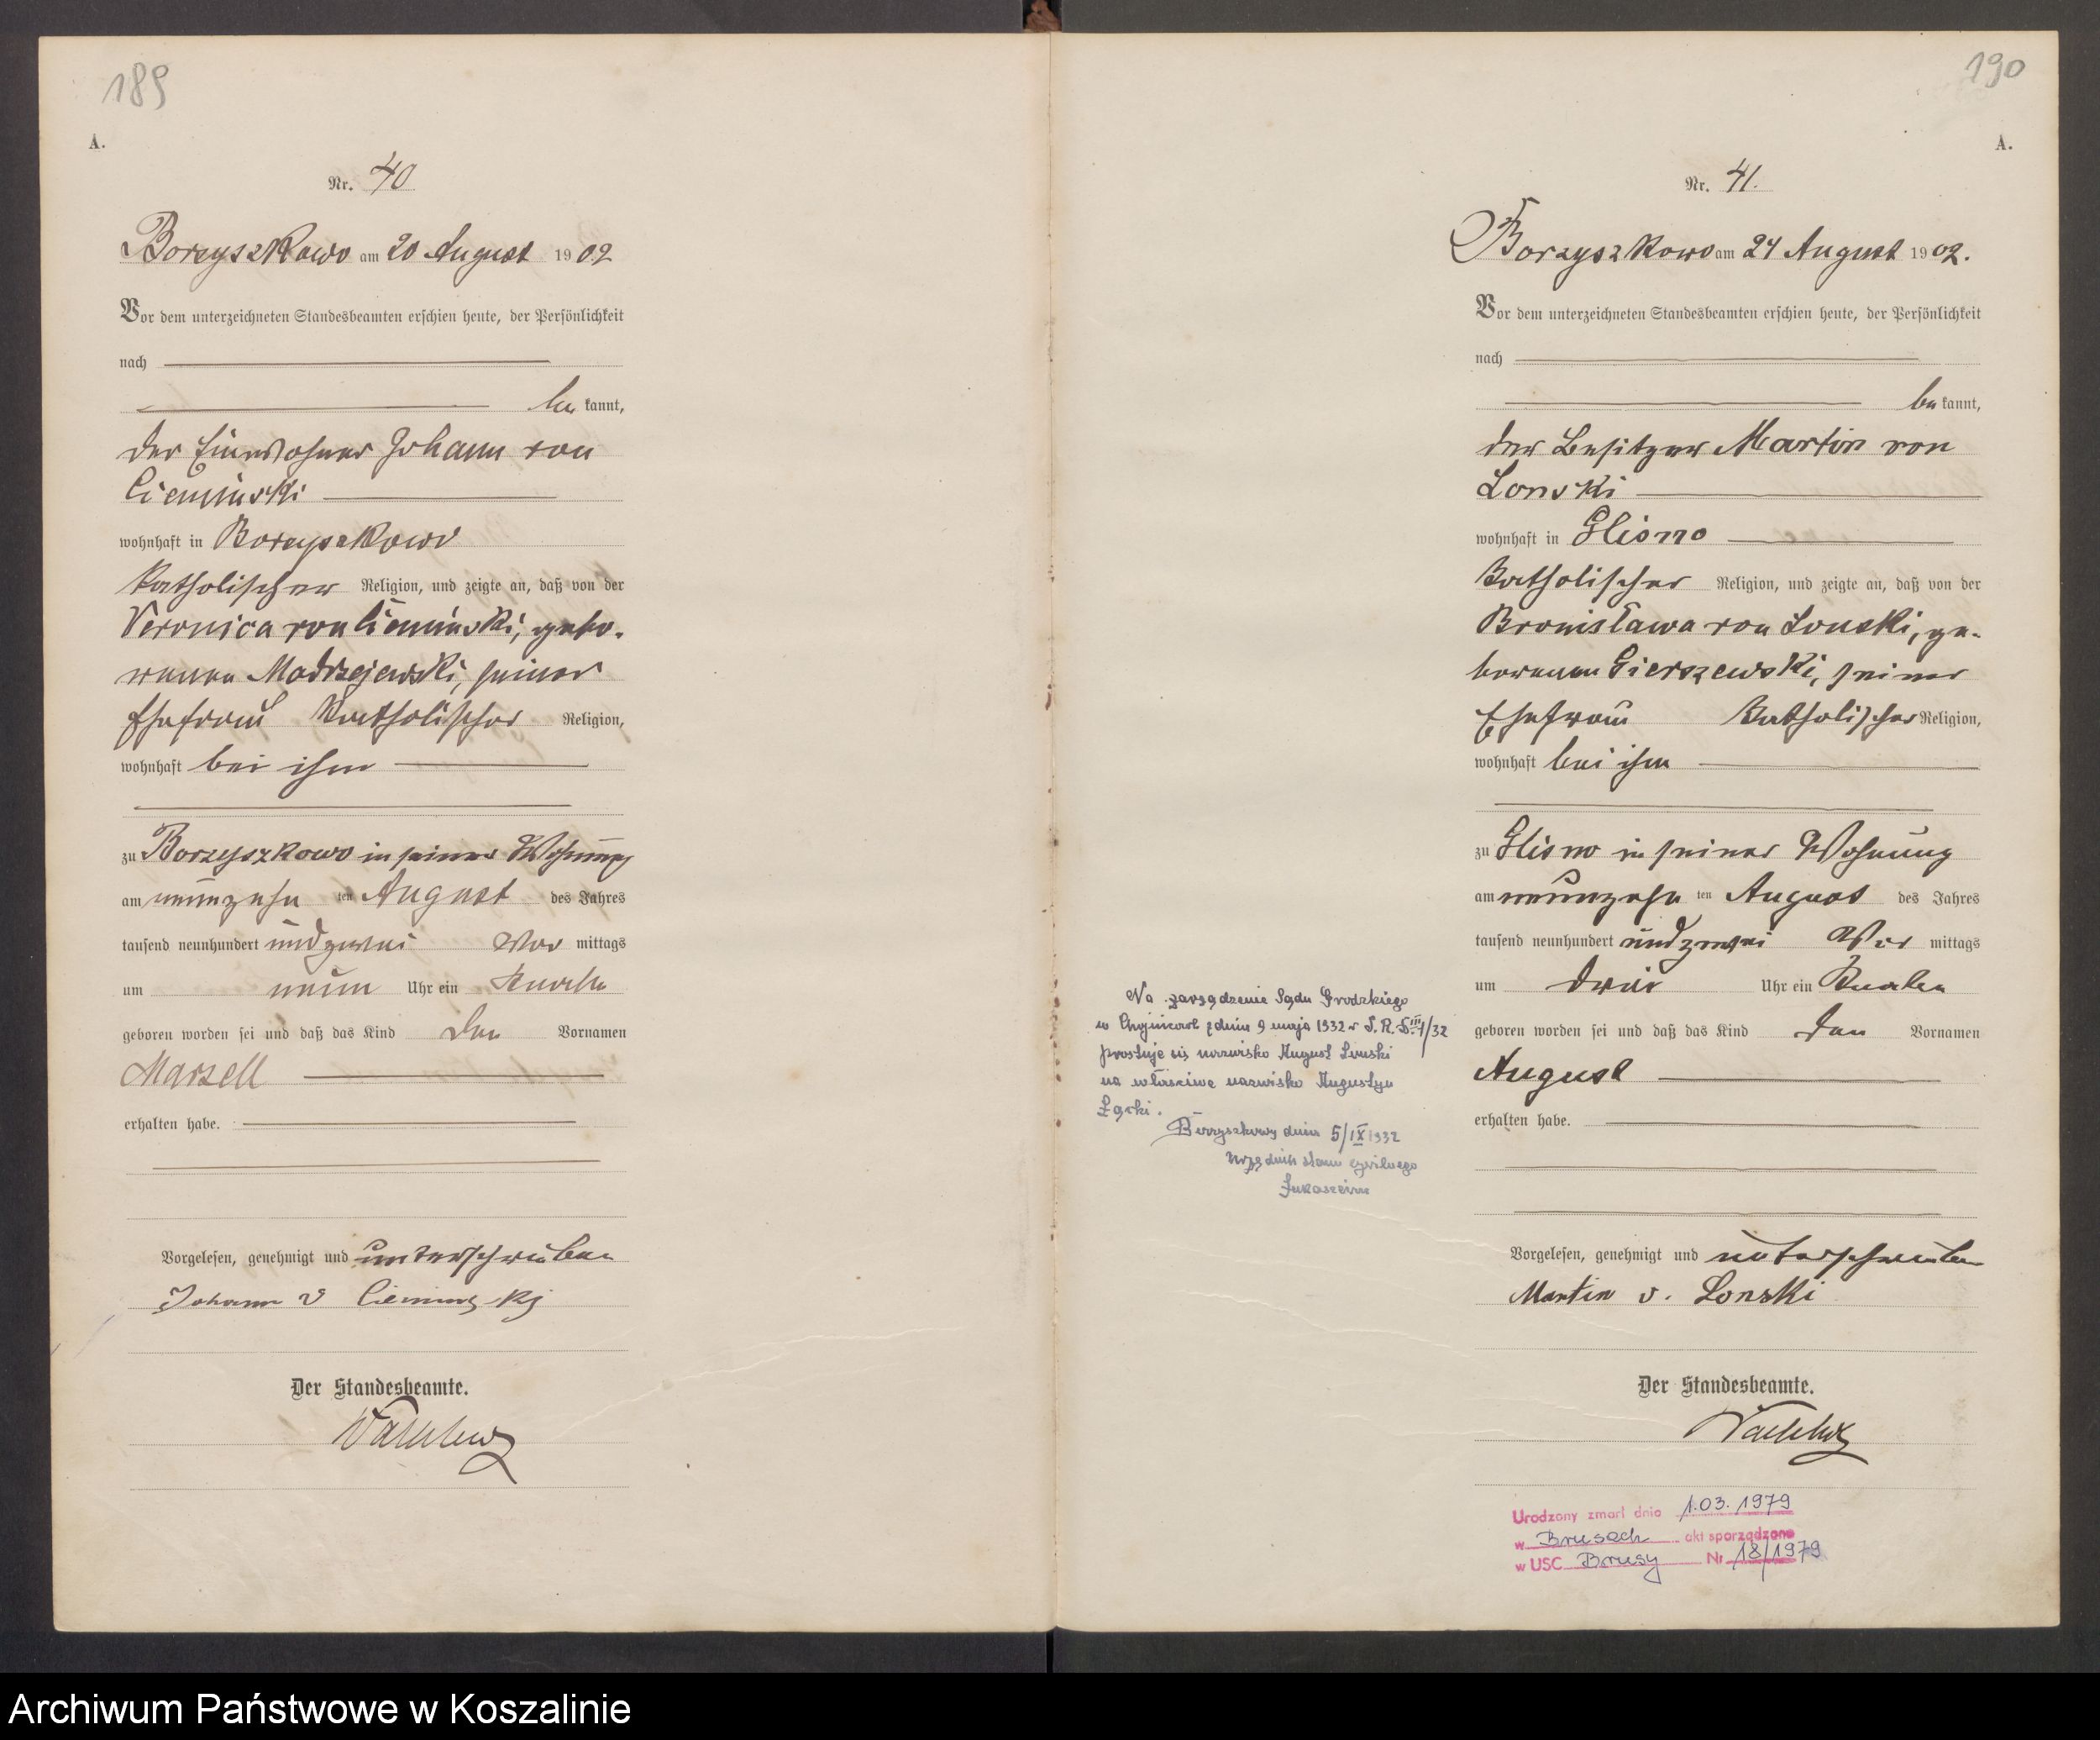 189
A.
Nr. 40
Borzyszkowo am 20 August 1902
Vor dem unterzeichneten Standesbeamten erschien heute, der Persönlichkeit
nach
be kannt,
der Einwohner Johann von
Cieminski
wohnhaft in Borzyszkowo
katholischer Religion, und zeigte an, daß von der
Veronica von Cieminski, gebo-
renen Modrzejewski, seiner
Ehefrau katholischer Religion,
wohnhaft bei ihm
zu Borzyszkowo in seiner Wohnung
am neunzehn ten August des Jahres
tausend neunhundert und zwei Vor mittags
um neun Uhr ein Knabe
geboren worden sei und daß das Kind den Vornamen
Marzell
erhalten habe.
Vorgelesen, genehmigt und unterschrieben
Johann v Cieminski
Der Standesbeamte.
190
A.
Nr. 41.
Borzyszkowo am 24 August 1902.
Vor dem unterzeichneten Standesbeamten erschien heute, der Persönlichkeit
nach
be kannt,
der Besitzer Martin von
Lonski
wohnhaft in Glisno
katholischer Religion, und zeigte an, daß von der
Bronisława von Lonski, ge-
borenen Gierszewski, seiner
Ehefrau katholischer Religion,
wohnhaft bei ihm
zu Glisno in seiner Wohnung
am neunzehn ten August des Jahres
tausend neunhundert und zwei Vor mittags
um drei Uhr ein Knabe
geboren worden sei und daß das Kind den Vornamen
August
erhalten habe.
Vorgelesen, genehmigt und unterschrieben
Martin v. Lonski
Der Standesbeamte.
Na zarządzenie Sądu Grodzkiego
w Chojnicach z dnia 9 maja 1932 r
prostuje się nazwisko August Lonski
na właściwe nazwisko Augustyn
Łąski.
Borzyszkowy dnia 5/IX 1932
Urzędnik stanu cywilnego
Urodzony zmarł dnia 1.03.1979
w Brusach akt sporządzono
w USC Brusy Nr 18/1979
Archiwum Państwowe w Koszalinie